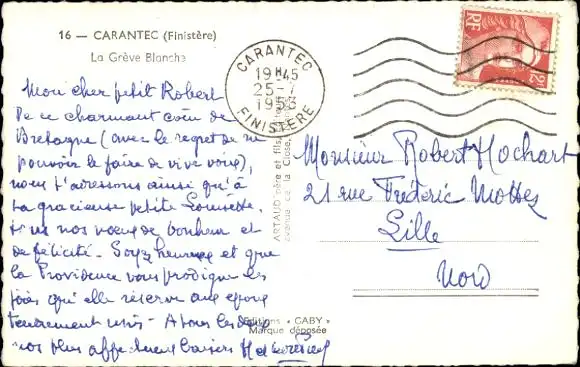 16 — CARANTEC (Finistère)
La Grève Blanche
Mon cher petit Robert
De ce charmant coin de
Bretagne (avec le regret de ne
pouvoir le faire de vive voix),
nous t'adressons ainsi qu'à
ta gracieuse petite
tous nos vœux de bonheur et
de félicité. Soyez heureux et que
la Providence vous prodigue les
joies qu'elle réserve aux époux
tendrement unis - A tous les deux
nos plus affectueux baisers
CARANTEC
19H45
25-7
1953
FINISTÈRE
RF
ARTAUD père et fils,
avenue de la Close,
Editions « GABY »
Marque déposée
Monsieur Robert Hochart
21 rue Frédéric Mottez
Lille
Nord